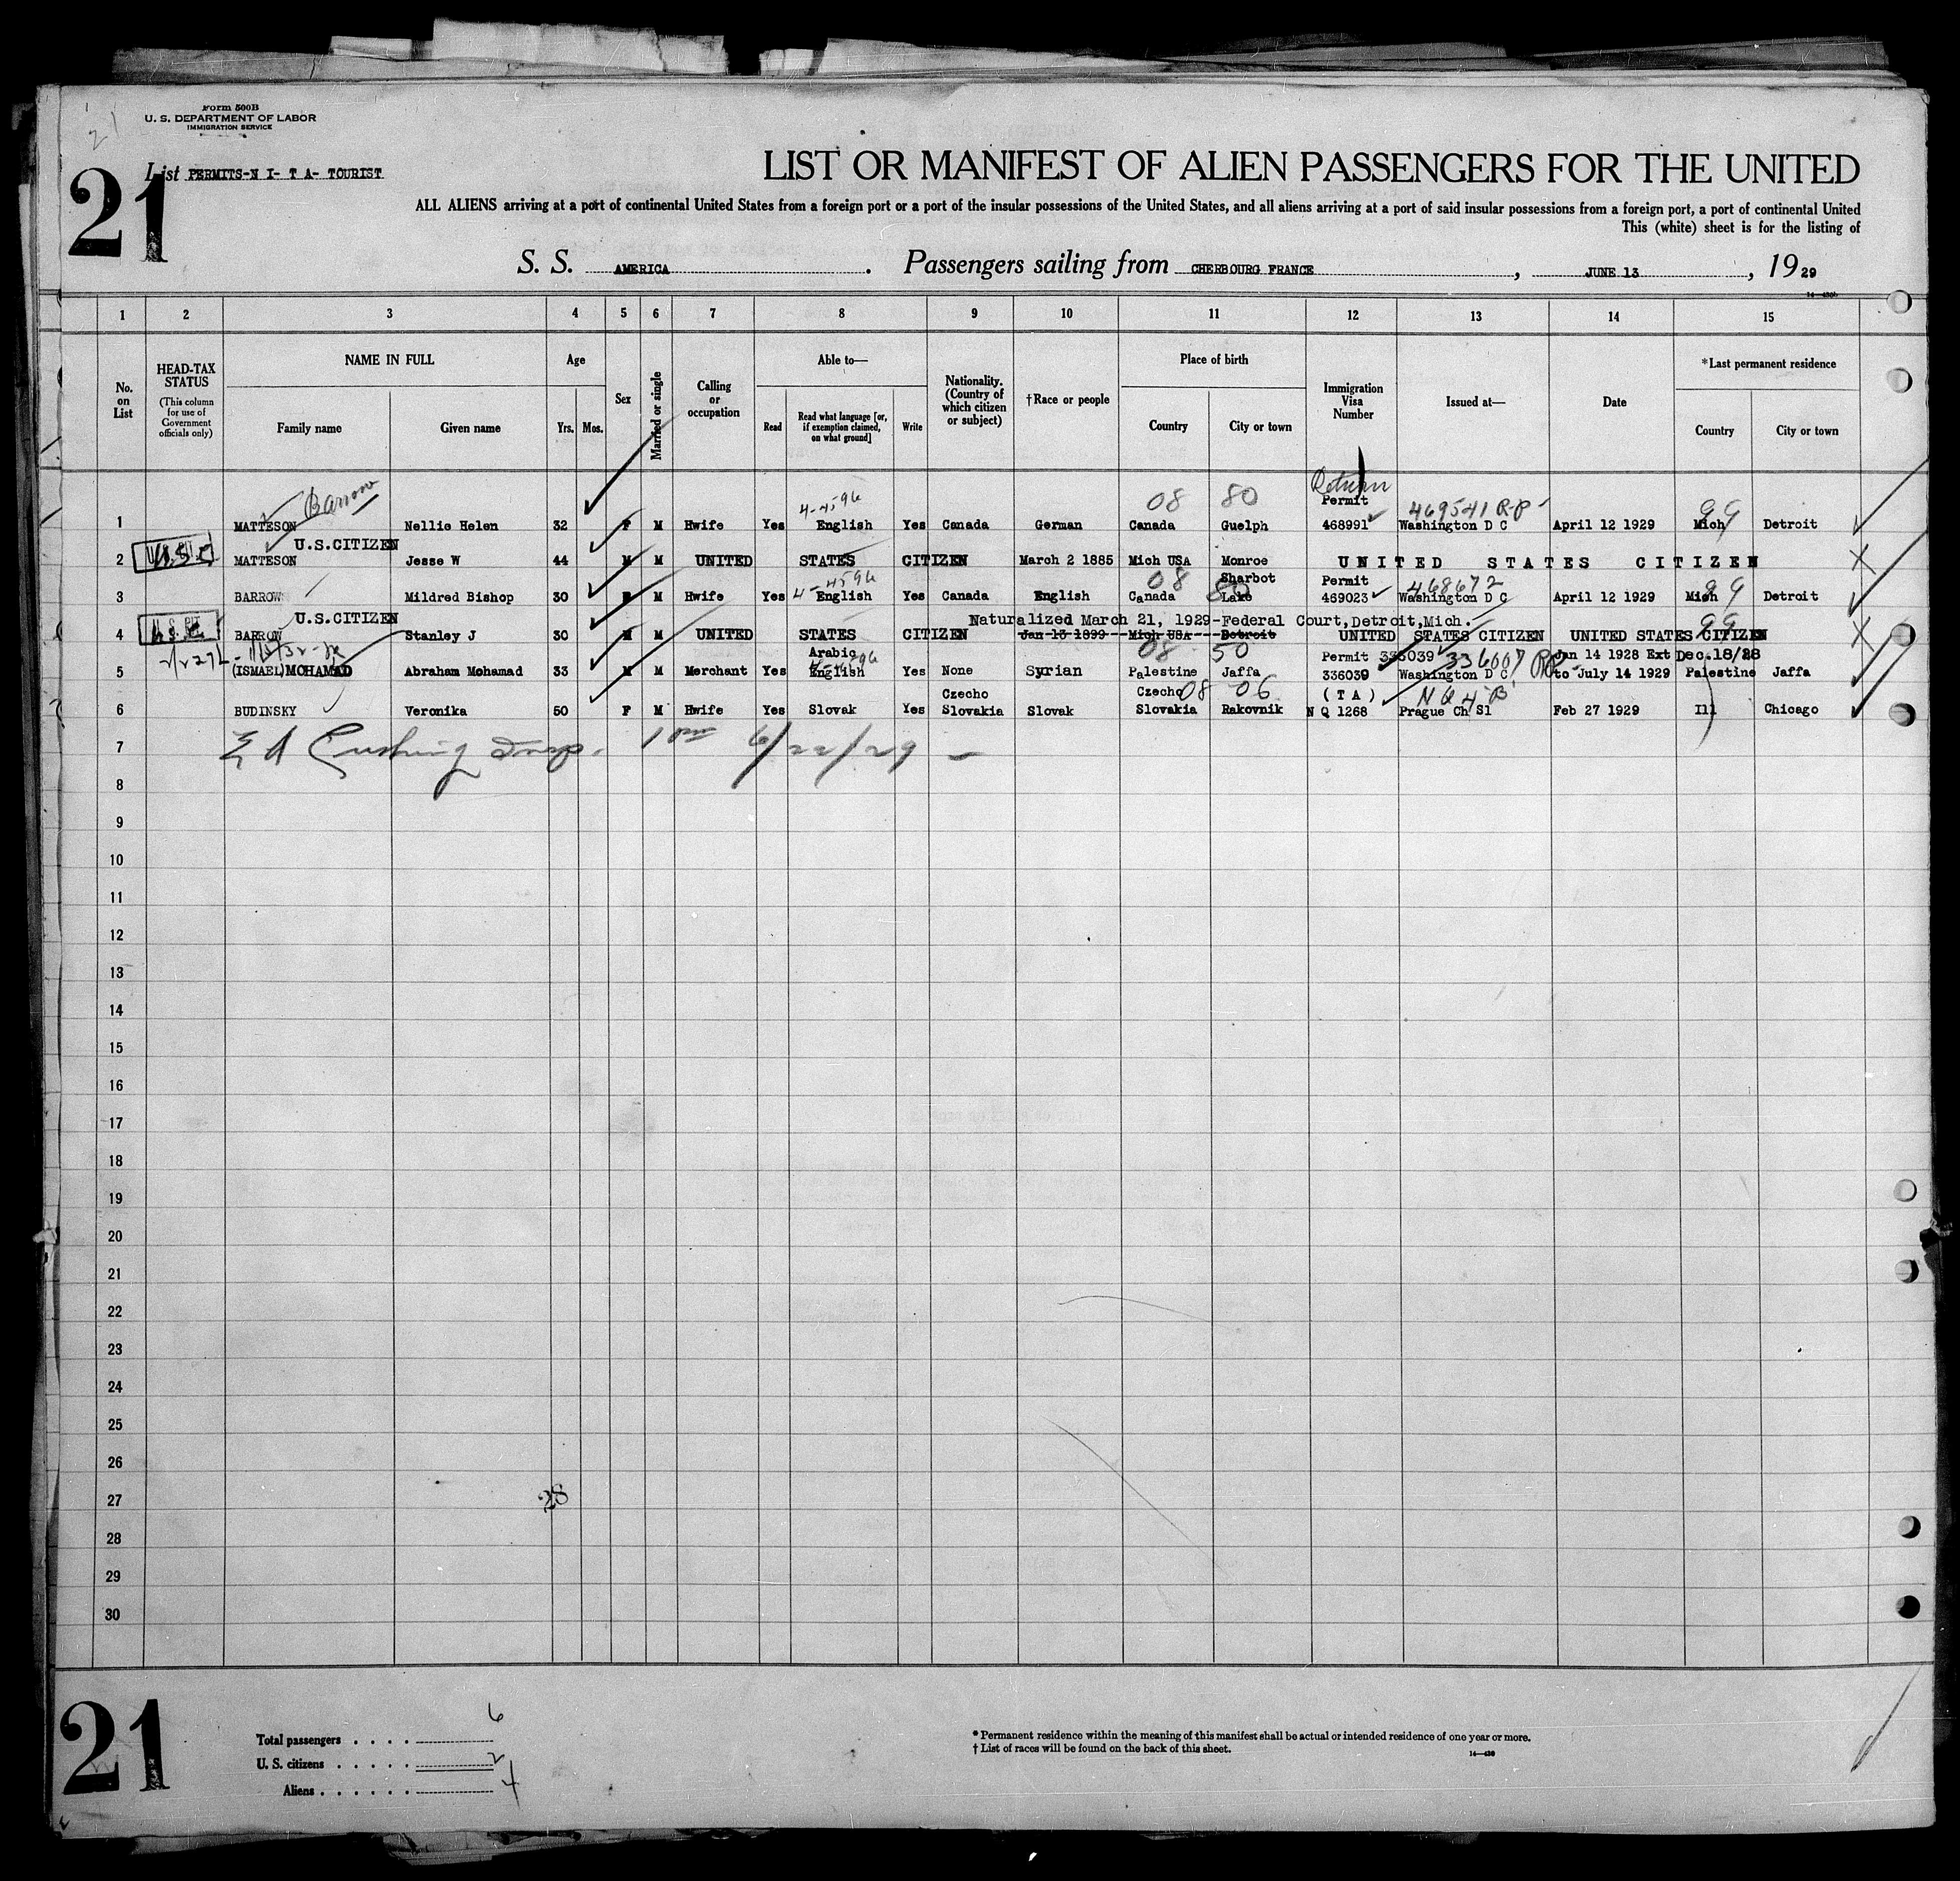 21
Form 500B
U. S. DEPARTMENT OF LABOR
IMMIGRATION SERVICE
List PERMITS-N I- T A- TOURIST
21
LIST OR MANIFEST OF ALIEN PASSENGERS FOR THE UNITED
ALL ALIENS arriving at a port of continental United States from a foreign port or a port of the insular possessions of the United States, and all aliens arriving at a port of said insular possessions from a foreign port, a port of continental United
This (white) sheet is for the listing of
S. S. AMERICA . Passengers sailing from CHERBOURG FRANCE , JUNE 13 , 1929
1 2 3 4 5 6 7 8 9 10 11 12 13 14 15
No. on List
HEAD-TAX STATUS (This column for use of Government officials only)
NAME IN FULL Family name Given name
Age Yrs. Mos.
Sex
Married or single
Calling or occupation
Able to— Read Read what language [or, if exemption claimed, on what ground] Write
Nationality. (Country of which citizen or subject)
†Race or people
Place of birth Country City or town
Immigration Visa Number
Issued at—
Date
*Last permanent residence Country City or town
Barrow 4-4596 08 80 Return Permit 469541 RP- 99
1 MATTESON Nellie Helen 32 F M Hwife Yes English Yes Canada German Canada Guelph 468991 Washington D C April 12 1929 Mich Detroit
U.S.CITIZEN
2 U.S.C MATTESON Jesse W 44 M M UNITED STATES CITIZEN March 2 1885 Mich USA Monroe UNITED STATES CITIZEN
4-4596 08 80 Sharbot Permit 468672 99
3 BARROW Mildred Bishop 30 F M Hwife Yes English Yes Canada English Canada Lake 469023 Washington D C April 12 1929 Mich Detroit
U.S.CITIZEN Naturalized March 21, 1929-Federal Court,Detroit,Mich. 99
4 BARROW Stanley J 30 M M UNITED STATES CITIZEN Jan 13 1899 Mich USA Detroit UNITED STATES CITIZEN UNITED STATES CITIZEN
Arabic 4-4596 08 50 Permit 336039 336007 RP- Jan 14 1928 Ext Dec.18/28
5 (ISMAEL)MOHAMAD Abraham Mohamad 33 M M Merchant Yes English Yes None Syrian Palestine Jaffa 336039 Washington D C to July 14 1929 Palestine Jaffa
Czecho Czecho 08 06 (T A) N Q 4 B
6 BUDINSKY Veronika 50 F M Hwife Yes Slovak Yes Slovakia Slovak Slovakia Rakovnik N Q 1268 Prague Ch Sl Feb 27 1929 Ill Chicago
7 E A Cushing Insp. 6/22/29 -
8
9
10
11
12
13
14
15
16
17
18
19
20
21
22
23
24
25
26
27
28
28
29
30
21
Total passengers . . . . 6
U. S. citizens . . . . . 2
Aliens . . . . . . 4
* Permanent residence within the meaning of this manifest shall be actual or intended residence of one year or more.
† List of races will be found on the back of this sheet.
14—430